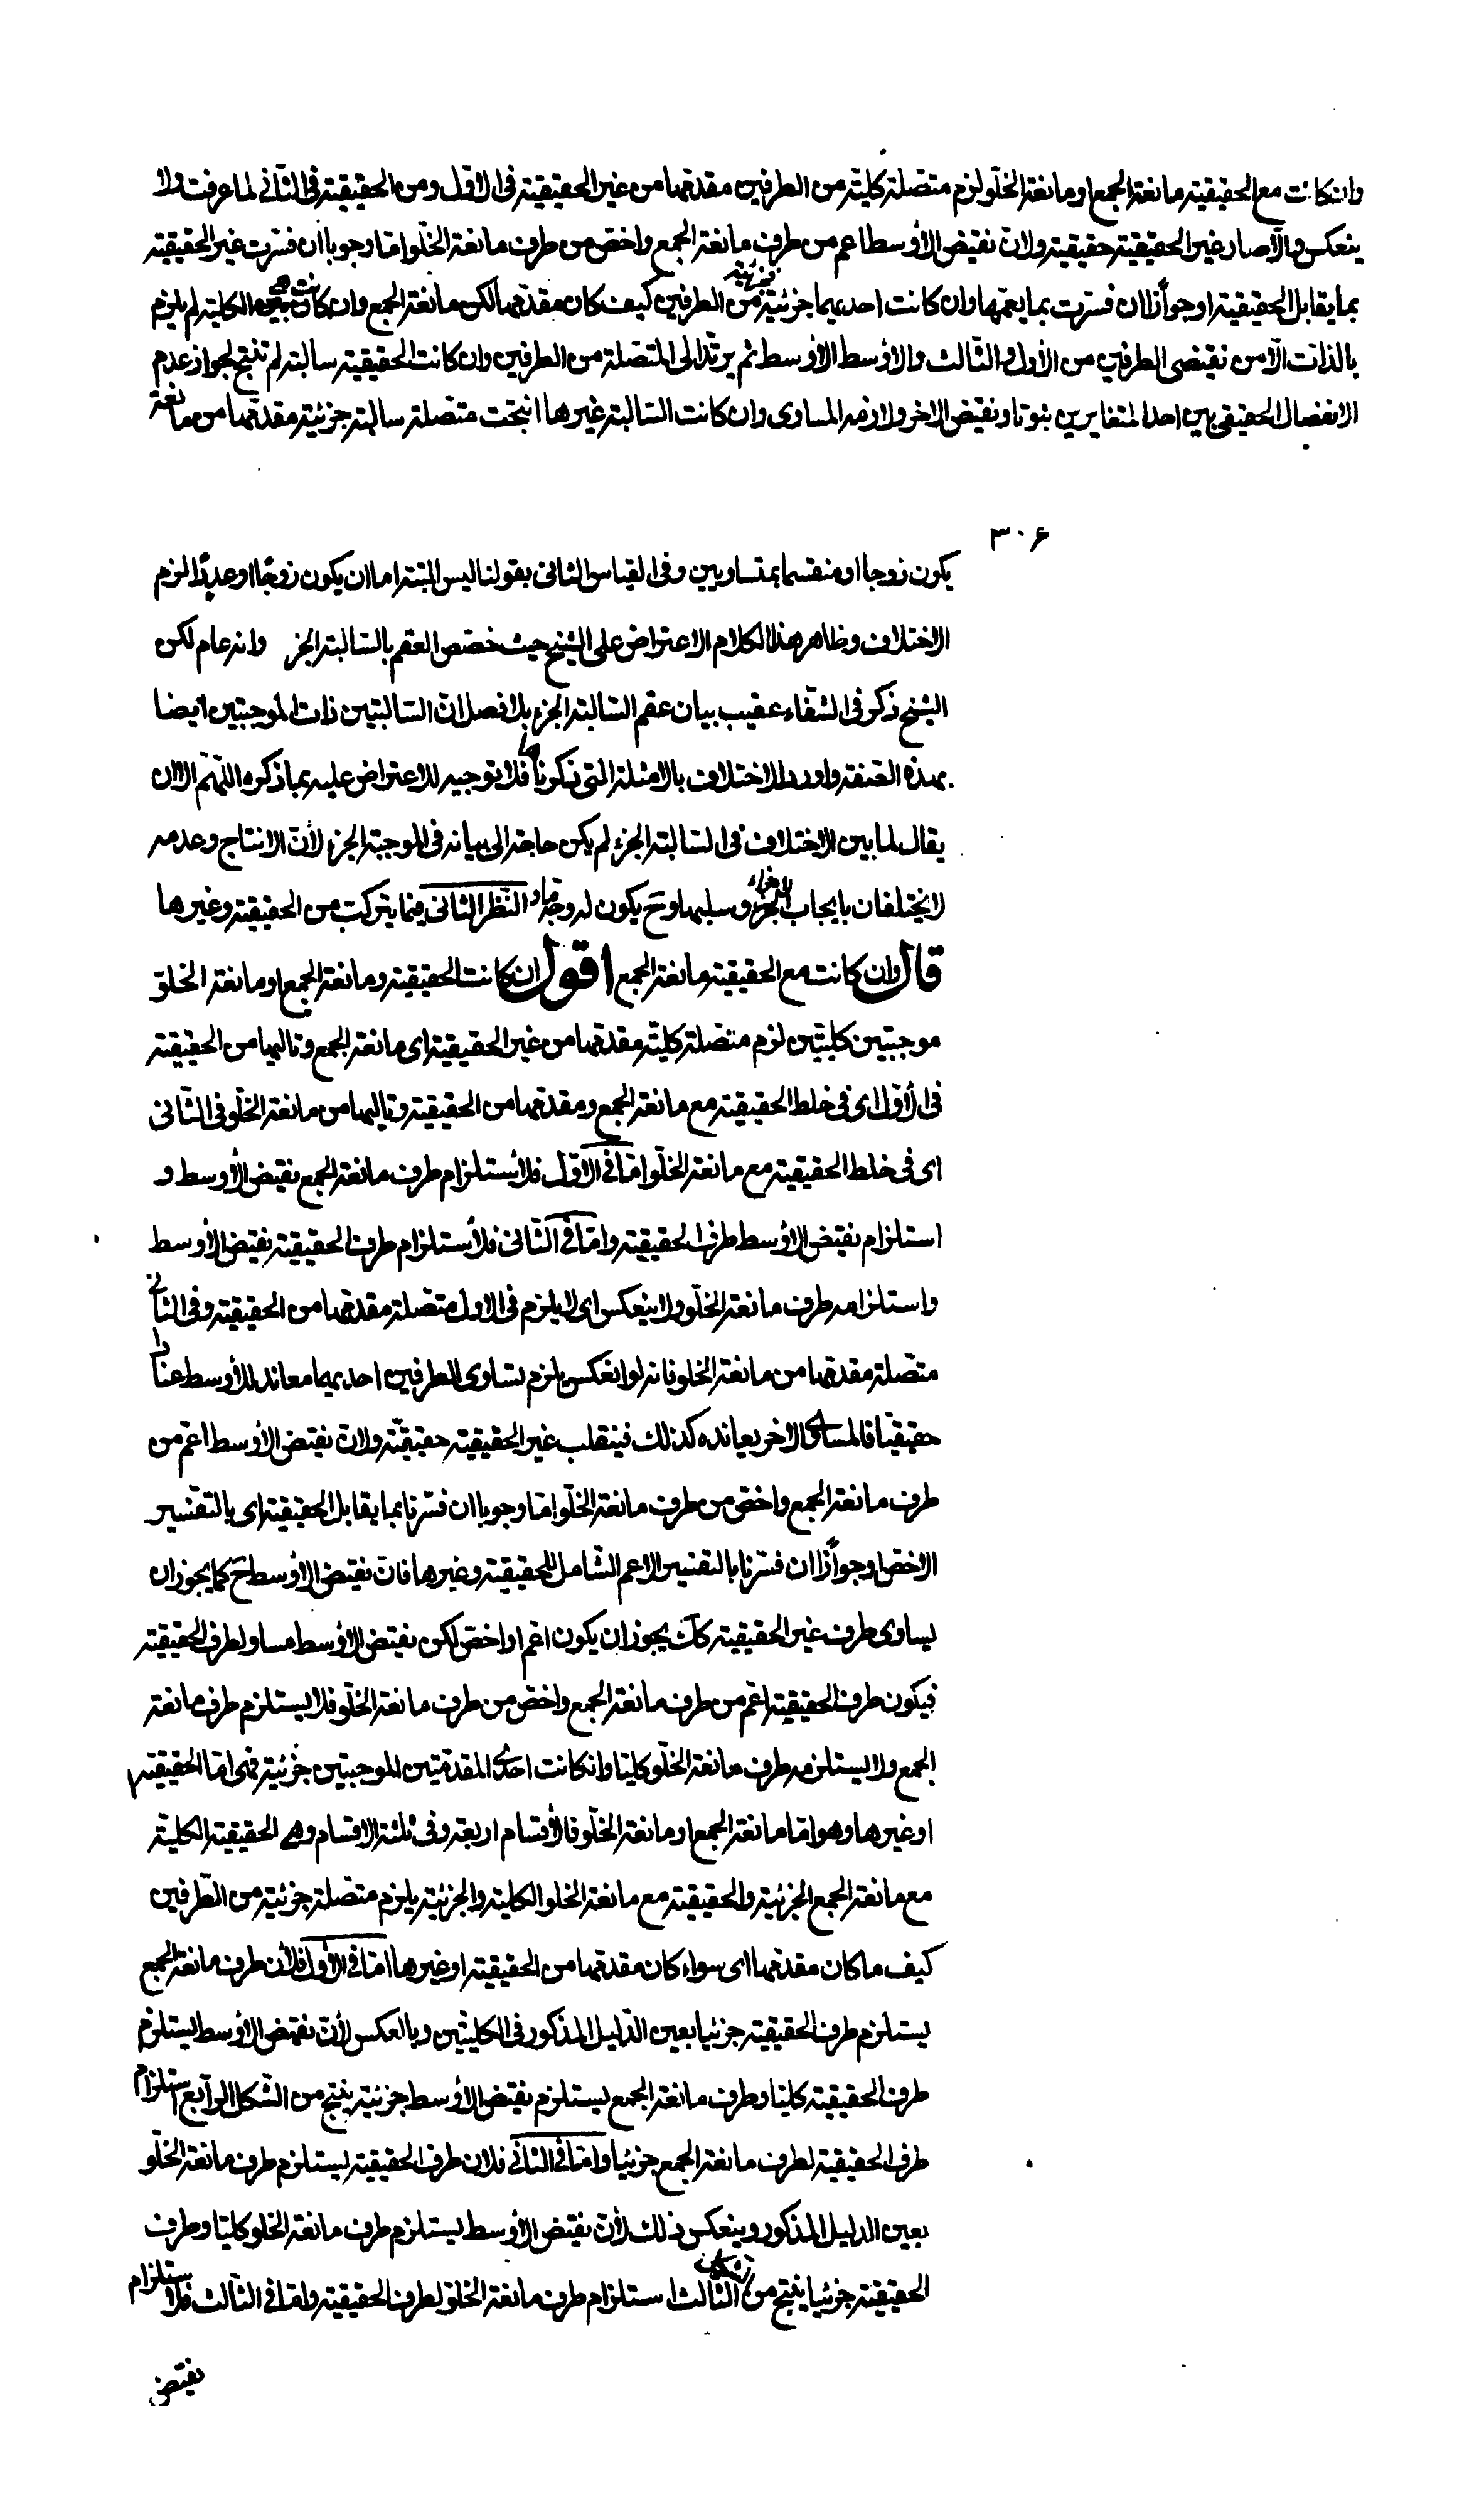 وانكانت مع الحقيقية مانعة الجمع او مانعة الخلو لزم متصلة كلية من الطرفين مقدمها من غير الحقيقية فى الاول ومن الحقيقية فى الثانى لما عرفت ولا
ينعكس والّا صار غير الحقيقية حقيقية ولان نقيض الأوسط اعم من طرف مانعة الجمع واخص من طرف مانعة الخلو امّا وجوبا ان فسرت غير الحقيقية
بما يقابل الحقيقية او جوازا ان فسرت بما يعمها وان كانت احديهما جزئية فجزئية من الطرفين كيف كان مقدمها لكن مانعة الجمع وان كانت هى الكلية لم يلزم
بالذات الّا من نقيضى الطرفين من الأول والثالث والاوسط الأوسط ثم يرتد الى المتصلة من الطرفين وان كانت الحقيقية سالبة لم تنتج لجواز عدم
الانفصال الحقيقى بين احد المتغايرين ثبوتا ونقيض الاخر ولازمه المساوى وان كانت السالبة غيرها انتجت متصلة سالبة جزئية مقدمها من مانعة
٣٠۶
يكون زوجا او منقسما بمتساويين وفى القياس الثانى بقولنا ليس البتة اما ان يكون زوجًا او عددًا لزم
الاختلاف وظاهر هذا الكلام الاعتراض على الشيخ حيث خصّص العقم بالسالبة الجزء وانه عام لكن
الشيخ ذكر فى الشفاء عقيب بيان عقم السالبة الجزء بلا فصل انّ السالبتين ذات الموجبتين ايضا
بهذه الصفة واورد الاختلاف بالامثلة التى ذكرناها فلا توجيه للاعتراض عليه بما ذكره اللّهمّ الا ان
يقال لما بين الاختلاف فى السالبة الجزء لم يكن حاجة الى بيانه فى الموجبة الجزء لأنّ الانتاج وعدمه
لا يختلفان بايجاب الاجزاء وسلبها وح يكون له وجه ما و النّظر الثانى فيما يتركب من الحقيقية وغيرها
قال وان كانت مع الحقيقية مانعة الجمع اقول ان كانت الحقيقية ومانعة الجمع او مانعة الخلوّ
موجبتين كليّتين لزم متصلة كليّة مقدمها من غير الحقيقية اى مانعة الجمع وتاليها من الحقيقية
فى الأول اى فى خلط الحقيقية مع مانعة الجمع ومقدمها من الحقيقية وتاليها من مانعة الخلو فى الثانى
اى فى خلط الحقيقية مع مانعة الخلو امّا فى الاوّل فلأستلزام طرف مانعة الجمع نقيض الأوسط و
استلزام نقيض الأوسط طرف الحقيقية وامّا فى الثّانى فلأستلزام طرف الحقيقية نقيض الأوسط
واستلزامه طرف مانعة الخلّو ولا ينعكس اى لا يلزم فى الاول متصلة مقدمها من الحقيقية وفى الثانى
متصلة مقدمها من مانعة الخلو فانه لو انعكس يلزم تساوى الطرفين احديهما معاند للأوسط عنادا
حقيقيّا فالمساوى الاخر يعانده كذلك فينقلب غير الحقيقية حقيقيّة ولانّ نقيض الأوسط اعمّ من
طرف مانعة الجمع واخصّ من طرف مانعة الخلّو امّا وجوبا ان فسّرنا بما يقابل الحقيقية اى بالتفسير
الاخصّ او جوازًا ان فسرنا بالتفسير الاعم الشّامل للحقيقية وغيرها فانّ نقيض الأوسط ح كما يجوز ان
يساوى طرف غير الحقيقية كك يجوز ان يكون اعمّ او اخصّ لكن نقيض الأوسط مساو لطرف الحقيقية
فيكون طرف الحقيقية اعّم من طرف مانعة الجمع واخصّ من طرف مانعة الخلّو فلا يستلزم طرف مانعة
الجمع ولا يستلزمه طرف مانعة الخلّو كليّا وانكانت احدى المقدمتين الموجبتين جزئية فهى امّا الحقيقية
او غيرها وهو امّا مانعة الجمع او مانعة الخلّو فالأقسام اربعة وفى ثلثة الاقسام وهى الحقيقية الكليّة
مع مانعة الجمع الجزئية والحقيقية مع مانعة الخلو الكلية والجزئية يلزم متصلة جزئية من الطّرفين
كيف ما كان مقدمها اى سواء كان مقدمها من الحقيقية او غيرها امّا فى الأول فلأن طرف مانعة الجمع
يستلزم طرف الحقيقية جزئيا بعين الدّليل المذكور فى الكليّتين وبالعكس لأنّ نقيض الأوسط يستلزم
طرف الحقيقية كليّا وطرف مانعة الجمع يستلزم نقيض الأوسط جزئية ينتج من الشّكل الرّابع استلزام
طرف الحقيقية لطرف مانعة الجمع جزئيا وامّا فى الثانى فلان طرف الحقيقية يستلزم طرف مانعة الخلّو
بعين الدليل المذكور وينعكس ذلك لأنّ نقيض الأوسط يستلزم طرف مانعة الخلو كليّا وطرف
الحقيقية جزئيا ينتج من الشكل الثالث استلزام طرف مانعة الخلوّ لطرف الحقيقية وامّا فى الثالث فلاستلزام
نقيض